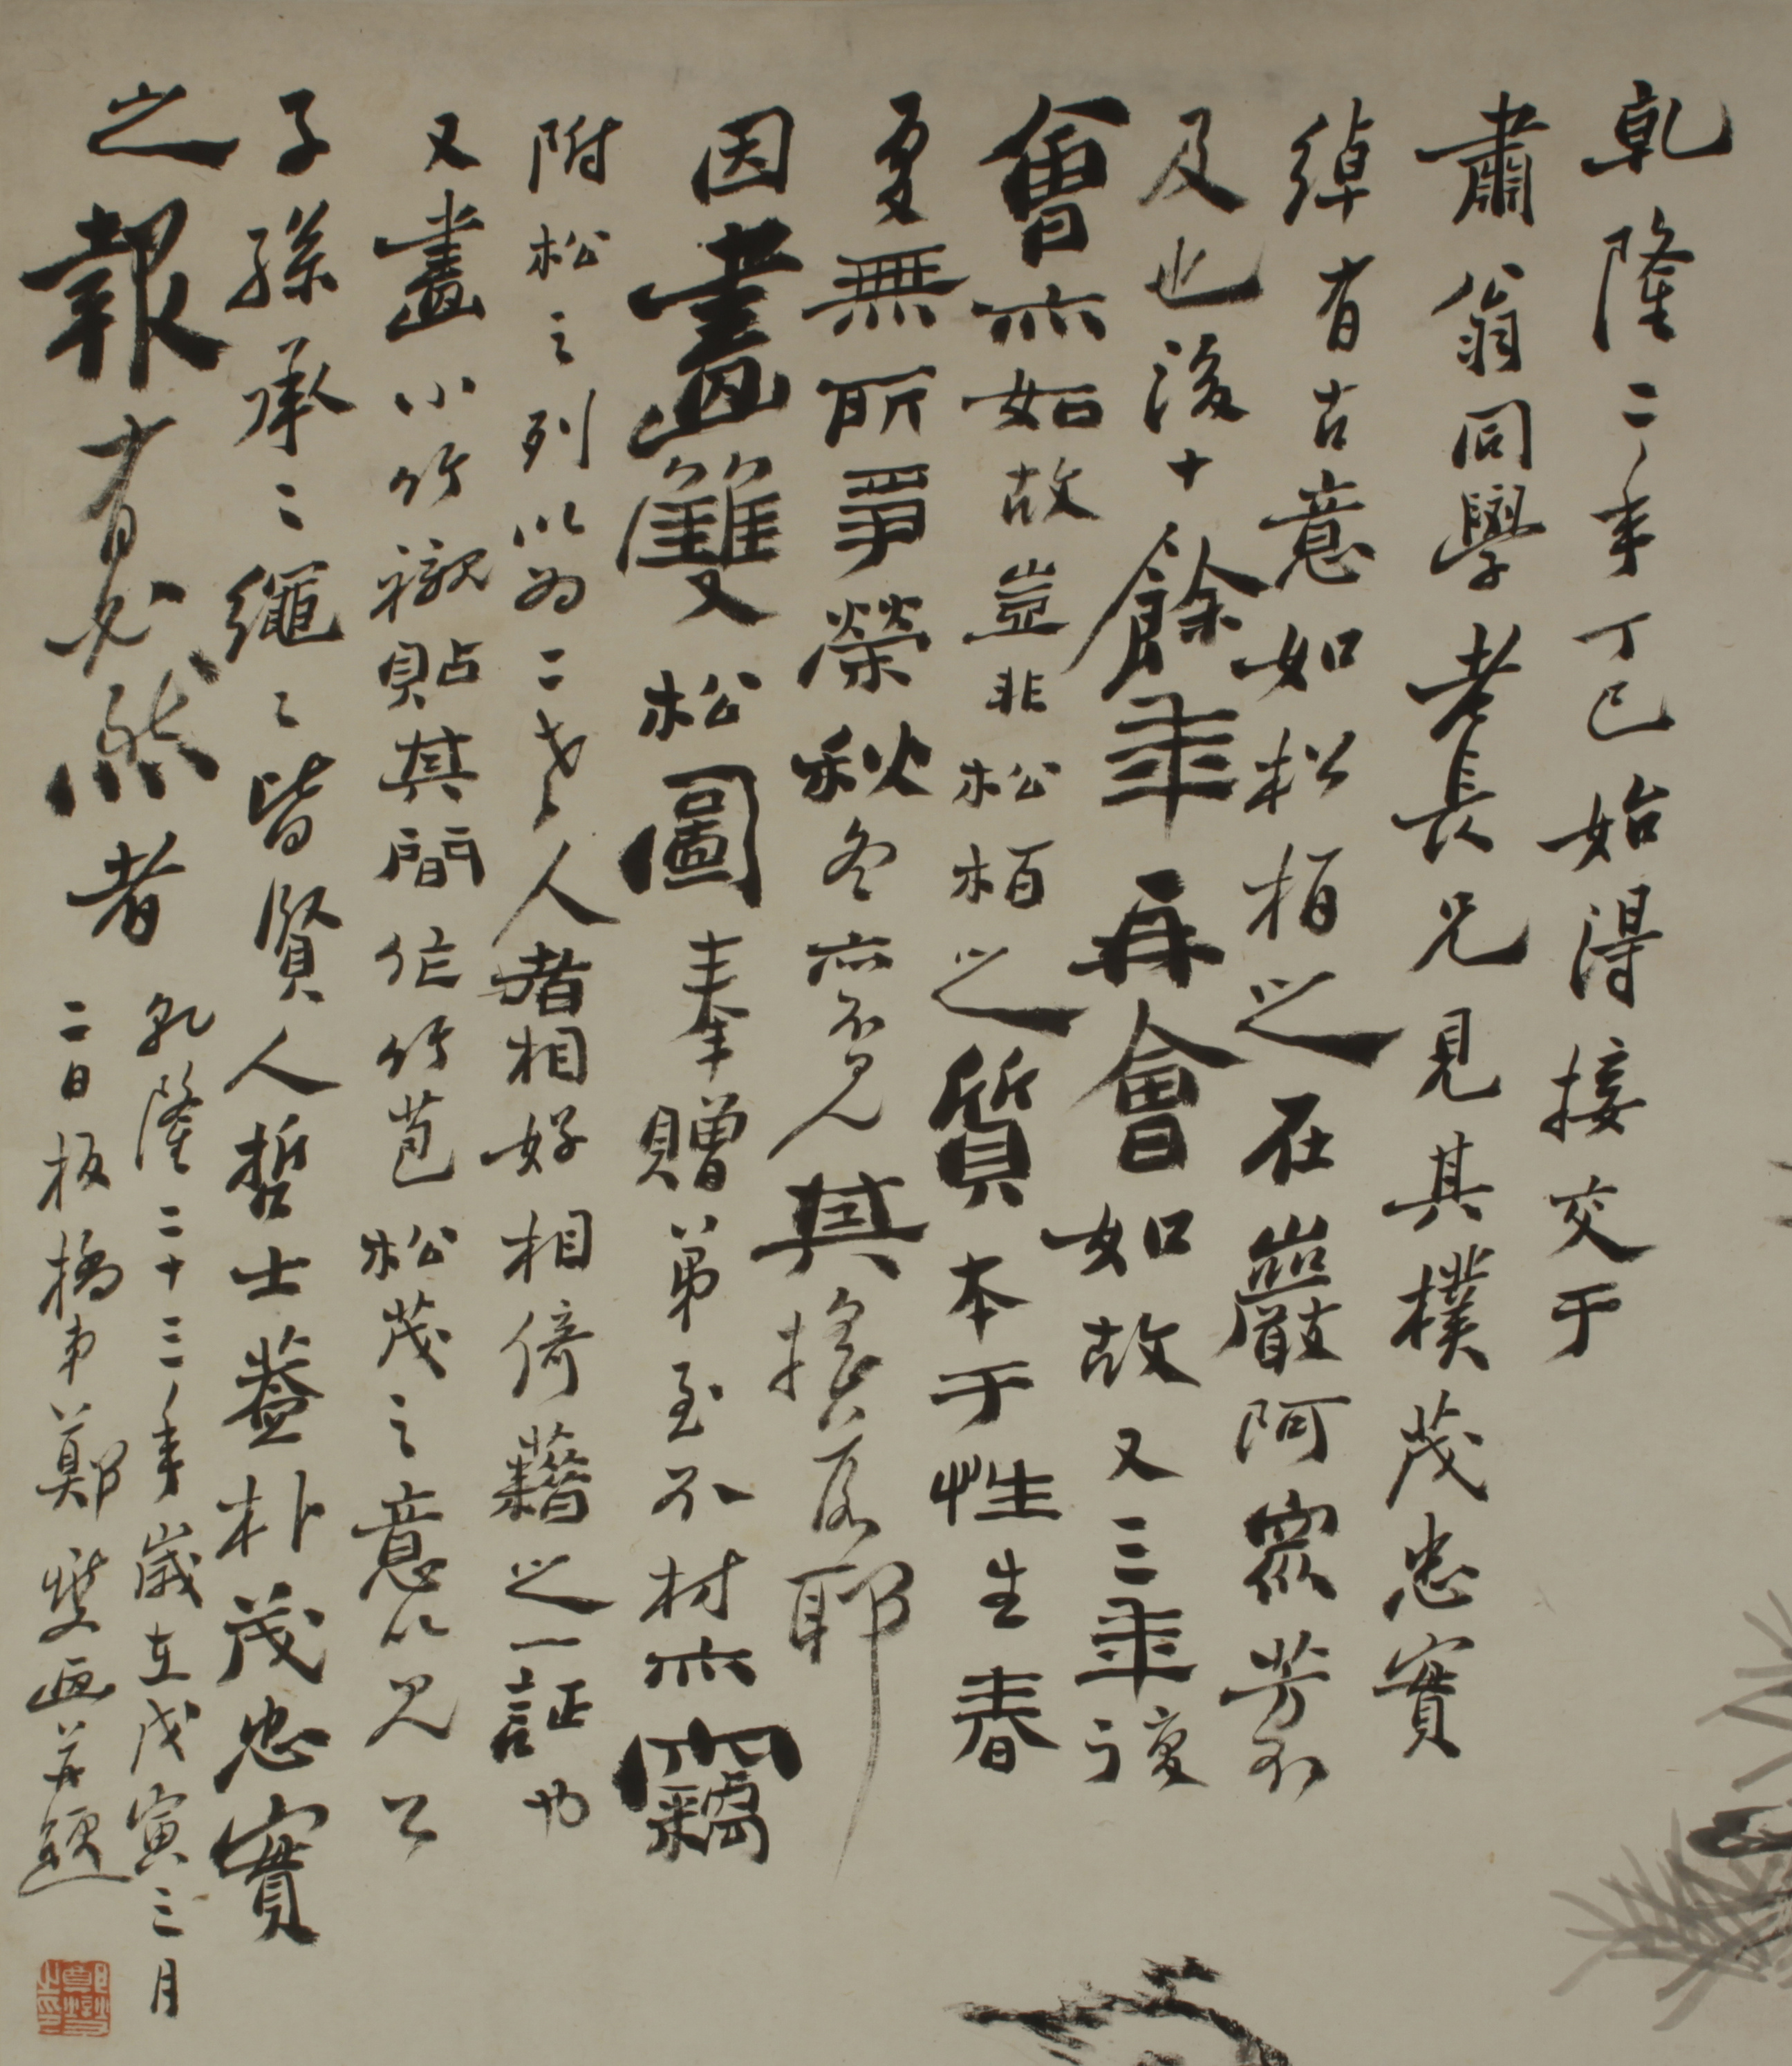 乾隆二年丁巳始得接交于
肅翁同學老長兄見其樸茂忠實
綽有古意如松栢之在巖阿眾芳不
及也後十餘年再會如故又三年復
會亦如故豈非松栢之質本于性生春
夏無所爭榮秋冬亦不見其搖落耶
因畫雙松圖奉贈弟至不材亦竊
附松之列以為二老人者相好相倚藉之一証也
又畫小竹襯貼其間作竹苞松茂之意以見公
子孫承承繩繩皆賢人哲士蓋朴茂忠實
之報有必然者
乾隆二十三年歲在戊寅三月
二日板橋弟鄭燮畫并題
鄭燮之印